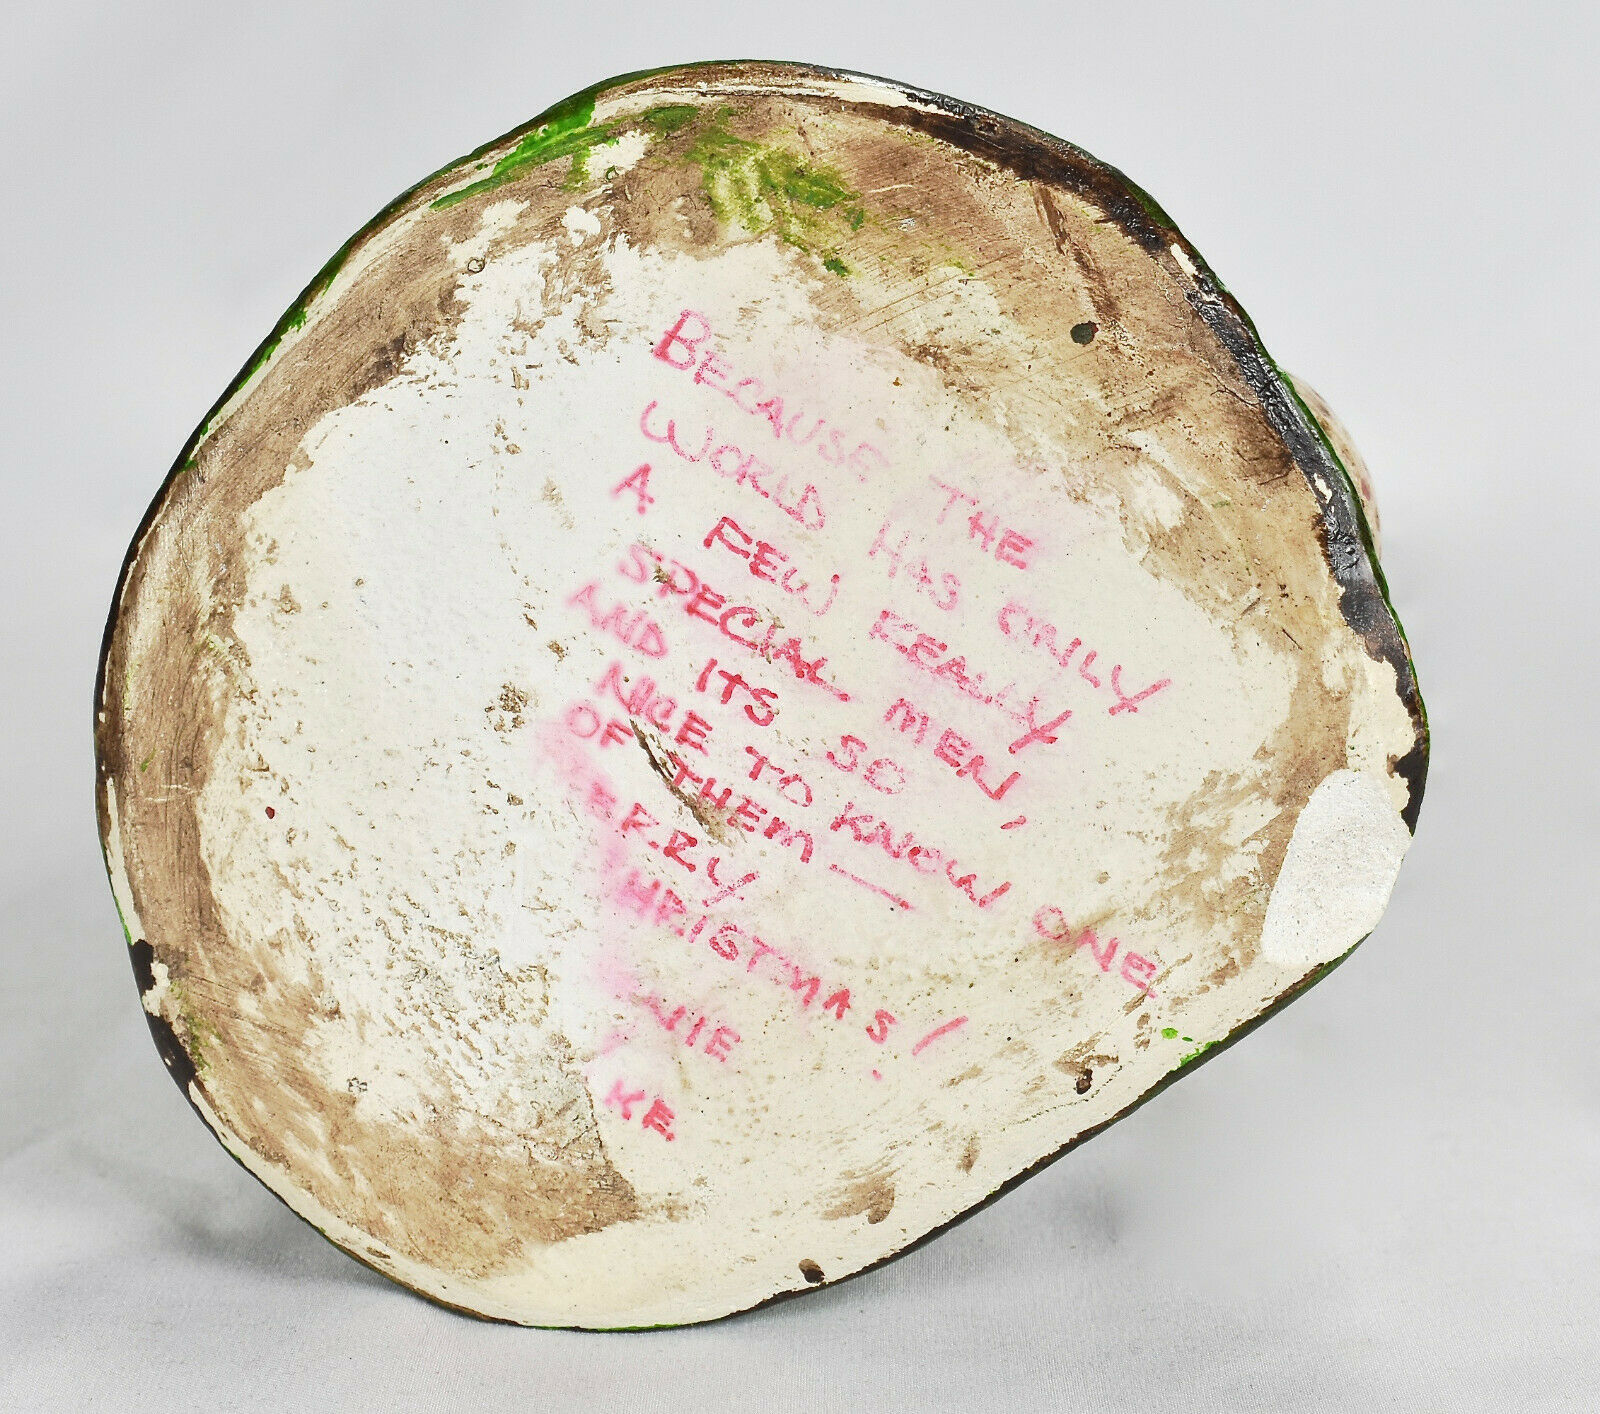 BECAUSE THE
WORLD HAS ONLY
A FEW REALLY
SPECIAL MEN,
AND ITS SO
NICE TO KNOW ONE
OF THEM —
ERRY
HRISTMAS!
NIE
KE